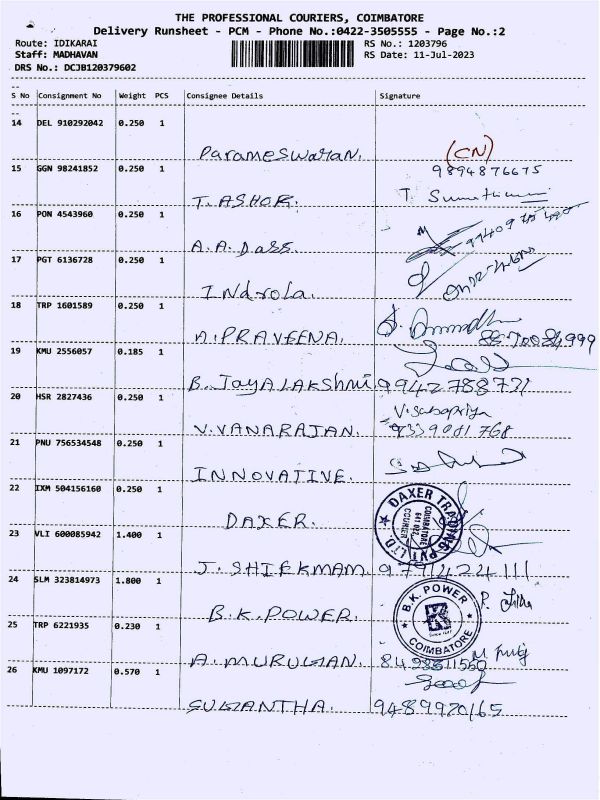 THE PROFESSIONAL COURIERS, COIMBATORE
Delivery Runsheet - PCM - Phone No.:0422-3505555 - Page No.:2
Route: IDIKARAI
RS No.: 1203796
Staff: MADHAVAN
RS Date: 11-Jul-2023
DRS No.: DCJB120379602
S No Consignment No Weight PCS Consignee Details Signature
14 DEL 910292042 0.250 1
Parameswaran. (CN)
9894876675
15 GGN 98241852 0.250 1
T. ASHOK. T.
16 PON 4543960 0.250 1
A. A. Dass.
17 PGT 6136728 0.250 1
Indrola.
18 TRP 1601589 0.250 1
A. PRAVEENA.
19 KMU 2556057 0.185 1
B. JayALAKshmi 9942788731
20 HSR 2827436 0.250 1
V. VANARAJAN.
21 PNU 756534548 0.250 1
INNOVATIVE.
22 IXM 504156160 0.250 1
DAXER. DAXER TRADING PVT LTD. COIMBATORE COURIER
23 VLI 600085942 1.400 1
J. SHIEKMAM.
24 SLM 323814973 1.800 1
B.K. POWER. B.K. POWER COIMBATORE
25 TRP 6221935 0.230 1
A. MURUGAN.
26 KMU 1097172 0.570 1
SUGANTHA. 9489920165